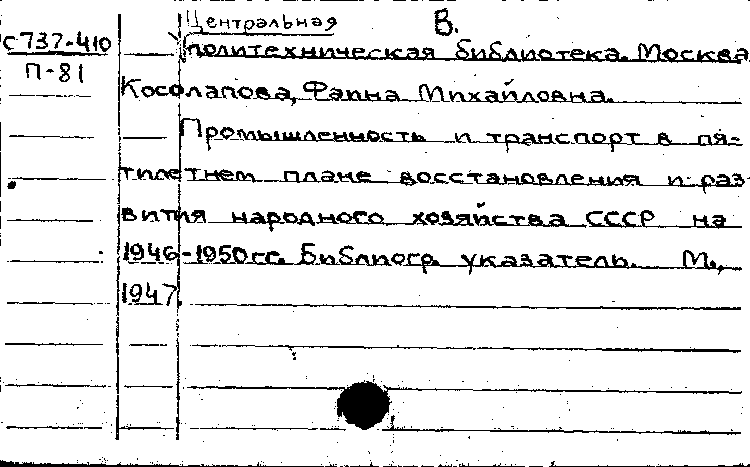 Центральная В.
с737-410 политехническая библиотека. Москва
П-81
Косолапова, Фаина Михайловна.
Промышленность и транспорт в пя-
тилетнем плане восстановления и раз
вития народного хозяйства СССР на
1946-1950гг. Библиогр. указатель. М.,
1947.